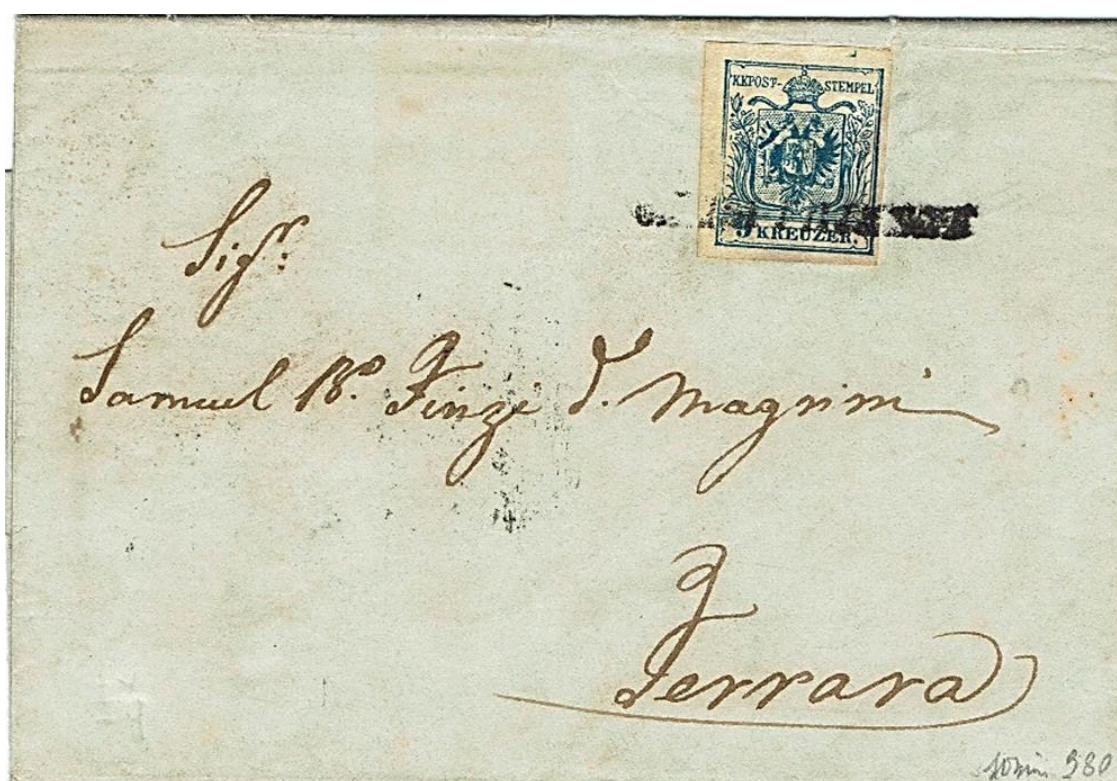 KKPOST-STEMPEL
9 KREUZER.
Sigr.
Samuel Bo. Finzi d. Magrini
Ferrara
980